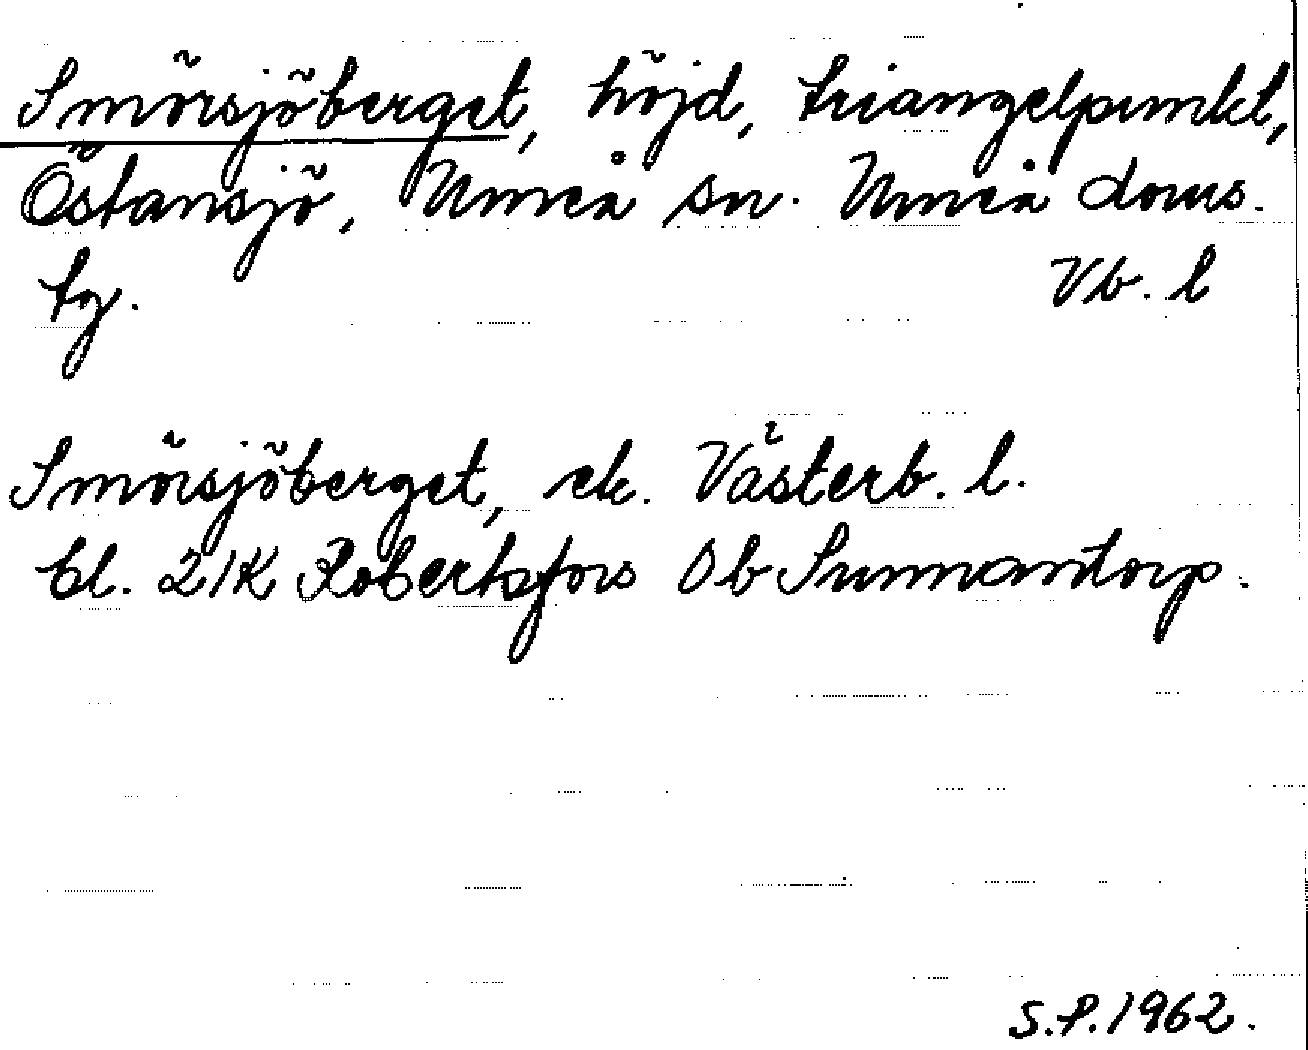 Smörsjöberget, höjd, triangelpunkt,
Östansjö, Umeå sn. Umeå doms.
tg. Vb. l
Smörsjöberget, ek. Västerb. l.
Bl. 21K Robertsfors 0b Sunnansorp.
S.P. 1962.